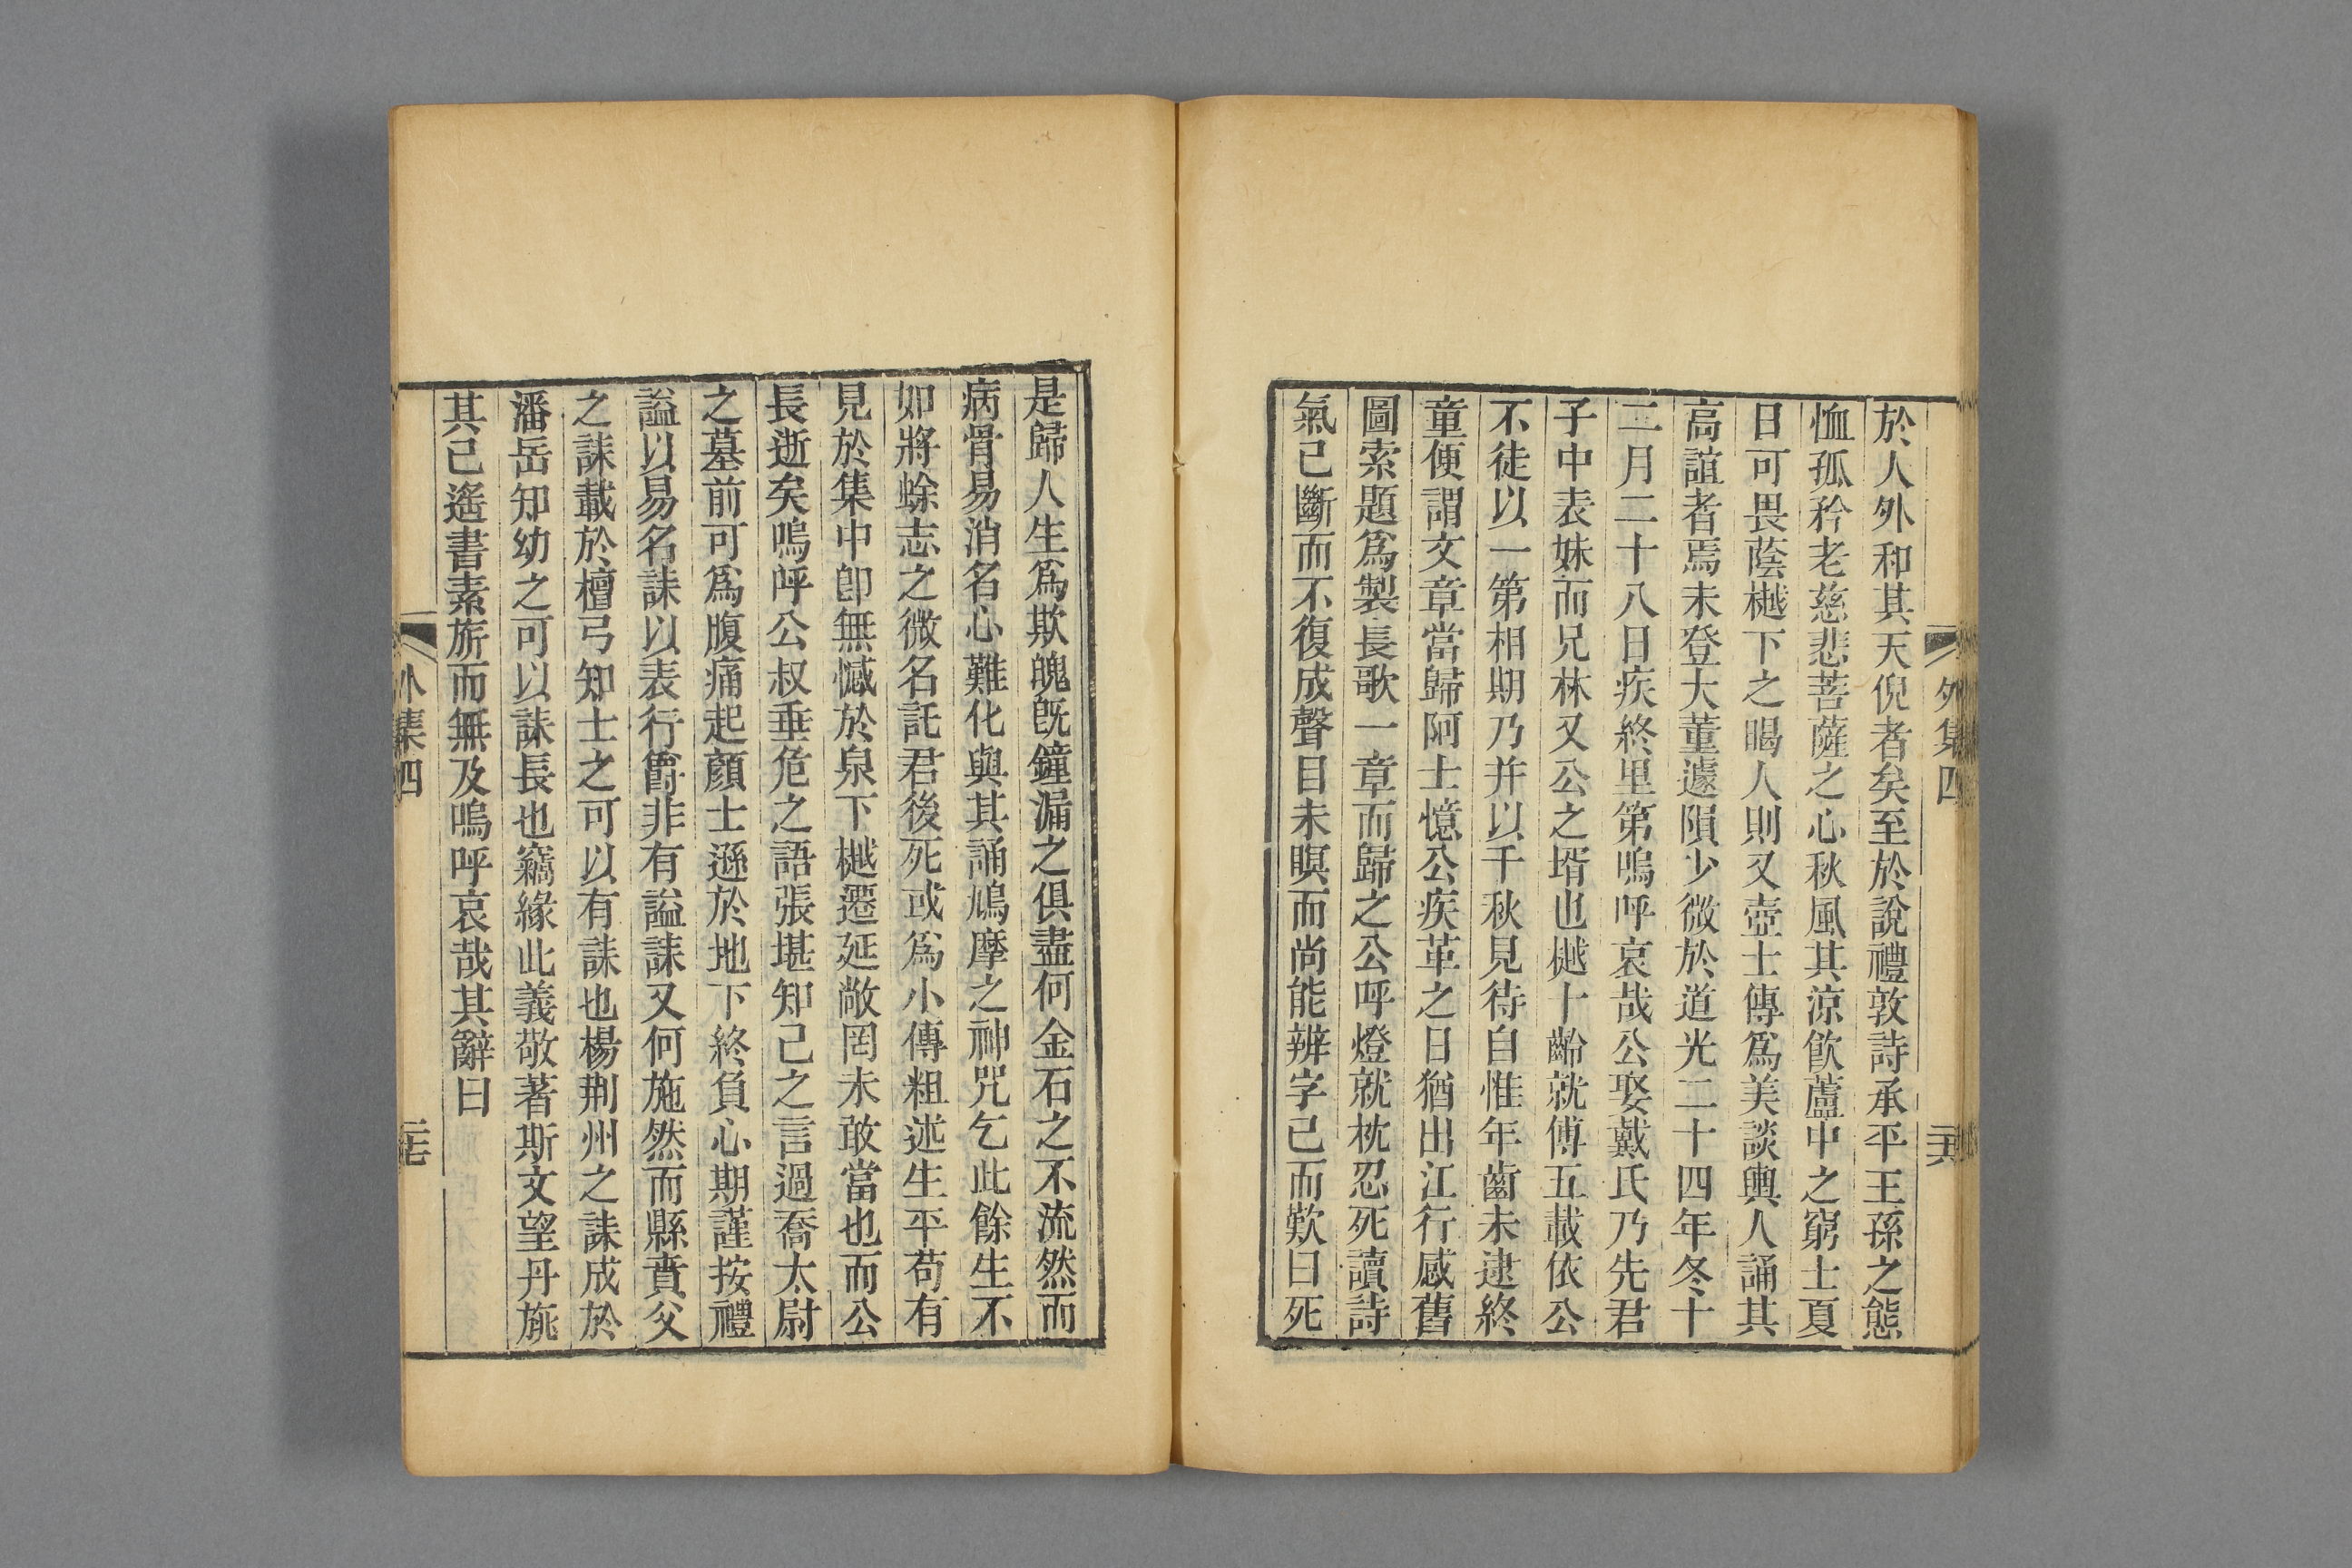 外集四
二十六
於人外和其天倪者矣至於說禮敦詩承平王孫之態
恤孤矜老慈悲菩薩之心秋風其涼飮蘆中之窮士夏
日可畏蔭樾下之暍人則又壺士傳爲美談輿人誦其
高誼者焉未登大董遽隕少微於道光二十四年冬十
二月二十八日疾終里第嗚呼哀哉公娶戴氏乃先君
子中表妹而兄林又公之壻也樾十齡就傅五載依公
不徒以一第相期乃并以千秋見待自惟年齒未逮終
童便謂文章當歸阿士憶公疾革之日猶出江行感舊
圖索題爲製長歌一章而歸之公呼燈就枕忍死讀詩
氣已斷而不復成聲目未瞑而尚能辨字已而歎曰死
是歸人生爲欺魄旣鐘漏之俱盡何金石之不流然而
病骨易消名心難化與其誦鳩摩之神咒乞此餘生不
如將蜍志之微名託君後死或爲小傳粗述生平苟有
見於集中卽無憾於泉下樾遷延敞罔未敢當也而公
長逝矣嗚呼公叔垂危之語張堪知己之言過喬太尉
之墓前可爲腹痛起顔士遜於地下終負心期謹按禮
謚以易名誄以表行爵非有謚誄又何施然而縣賁父
之誄載於檀弓知士之可以有誄也楊荆州之誄成於
潘岳知幼之可以誄長也竊緣此義敬著斯文望丹旐
其已遙書素旂而無及嗚呼哀哉其辭曰
外集四
二十七